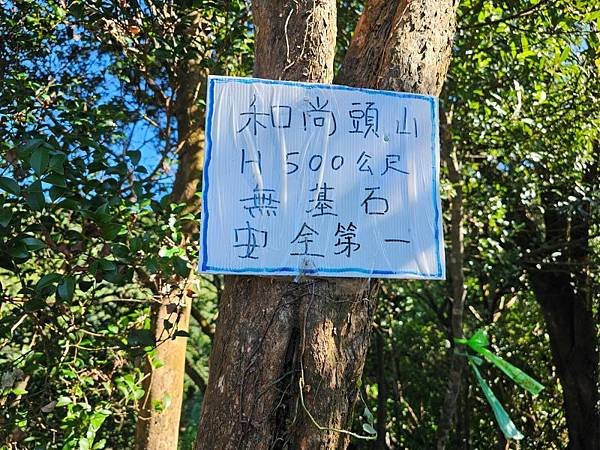 和尚頭山
H 500公尺
無基石
安全第一